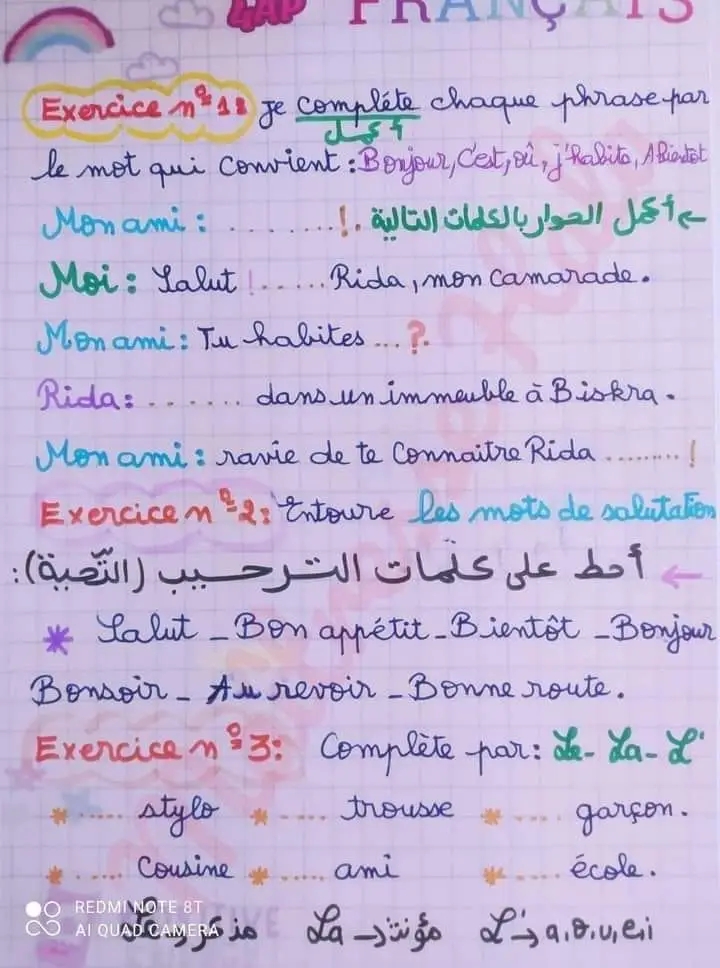 4AP FRANÇAIS
Exercice nº 1: je complète chaque phrase par
أكمل
le mot qui convient : Bonjour, C'est, où, j'habite, A Bientôt
Mon ami : ........!. أكمل الحوار بالكلمات التالية
Moi : Salut !..... Rida, mon camarade.
Mon ami : Tu habites ...?
Rida: ....... dans un immeuble à Biskra.
Mon ami : ravie de te Connaitre Rida ........!
Exercice nº 2: Entoure les mots de salutation
← أحط على كلمات الترحيب (التّحية):
* Salut - Bon appétit - Bientôt - Bonjour
Bonsoir - Au revoir - Bonne route.
Exercice nº 3: Complète par: Le - La - L'
* ..... stylo * ..... trousse * .... garçon.
* ..... Cousine * ..... ami * .... école.
Le → مذكر La → مؤنث L' → a, o, u, e, i
REDMI NOTE 8T
AI QUAD CAMERA